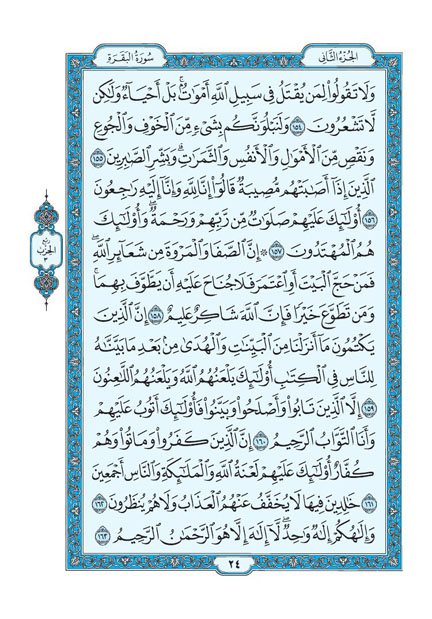 الجزء الثاني
سورة البقرة
وَلَا تَقُولُوا۟ لِمَن يُقْتَلُ فِى سَبِيلِ ٱللَّهِ أَمْوَٰتٌۢ ۚ بَلْ أَحْيَآءٌ وَلَٰكِن
لَّا تَشْعُرُونَ ١٥٤ وَلَنَبْلُوَنَّكُم بِشَىْءٍ مِّنَ ٱلْخَوْفِ وَٱلْجُوعِ
وَنَقْصٍ مِّنَ ٱلْأَمْوَٰلِ وَٱلْأَنفُسِ وَٱلثَّمَرَٰتِ ۗ وَبَشِّرِ ٱلصَّٰبِرِينَ ١٥٥
ٱلَّذِينَ إِذَآ أَصَٰبَتْهُم مُّصِيبَةٌ قَالُوٓا۟ إِنَّا لِلَّهِ وَإِنَّآ إِلَيْهِ رَٰجِعُونَ
١٥٦ أُو۟لَٰٓئِكَ عَلَيْهِمْ صَلَوَٰتٌ مِّن رَّبِّهِمْ وَرَحْمَةٌ ۖ وَأُو۟لَٰٓئِكَ
هُمُ ٱلْمُهْتَدُونَ ١٥٧ ۞ إِنَّ ٱلصَّفَا وَٱلْمَرْوَةَ مِن شَعَآئِرِ ٱللَّهِ ۖ
فَمَنْ حَجَّ ٱلْبَيْتَ أَوِ ٱعْتَمَرَ فَلَا جُنَاحَ عَلَيْهِ أَن يَطَّوَّفَ بِهِمَا ۚ
وَمَن تَطَوَّعَ خَيْرًا فَإِنَّ ٱللَّهَ شَاكِرٌ عَلِيمٌ ١٥٨ إِنَّ ٱلَّذِينَ
يَكْتُمُونَ مَآ أَنزَلْنَا مِنَ ٱلْبَيِّنَٰتِ وَٱلْهُدَىٰ مِنۢ بَعْدِ مَا بَيَّنَّٰهُ
لِلنَّاسِ فِى ٱلْكِتَٰبِ ۙ أُو۟لَٰٓئِكَ يَلْعَنُهُمُ ٱللَّهُ وَيَلْعَنُهُمُ ٱللَّٰعِنُونَ
١٥٩ إِلَّا ٱلَّذِينَ تَابُوا۟ وَأَصْلَحُوا۟ وَبَيَّنُوا۟ فَأُو۟لَٰٓئِكَ أَتُوبُ عَلَيْهِمْ ۚ
وَأَنَا ٱلتَّوَّابُ ٱلرَّحِيمُ ١٦٠ إِنَّ ٱلَّذِينَ كَفَرُوا۟ وَمَاتُوا۟ وَهُمْ
كُفَّارٌ أُو۟لَٰٓئِكَ عَلَيْهِمْ لَعْنَةُ ٱللَّهِ وَٱلْمَلَٰٓئِكَةِ وَٱلنَّاسِ أَجْمَعِينَ
١٦١ خَٰلِدِينَ فِيهَا ۖ لَا يُخَفَّفُ عَنْهُمُ ٱلْعَذَابُ وَلَا هُمْ يُنظَرُونَ ١٦٢
وَإِلَٰهُكُمْ إِلَٰهٌ وَٰحِدٌ ۖ لَّآ إِلَٰهَ إِلَّا هُوَ ٱلرَّحْمَٰنُ ٱلرَّحِيمُ ١٦٣
ربع
الحزب
٢٤